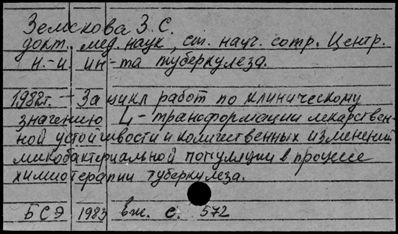 Земскова З. С.
докт. мед. наук, ст. науч. сотр. Центр.
н.-и. ин-та туберкулеза.
1982г. - За цикл работ по клиническому
значению L - трансформации лекарствен-
ной устойчивости и количественных изменений
микобактериальной популяции в процессе
химиотерапии туберкулеза.
БСЭ 1983 вып. с. 572